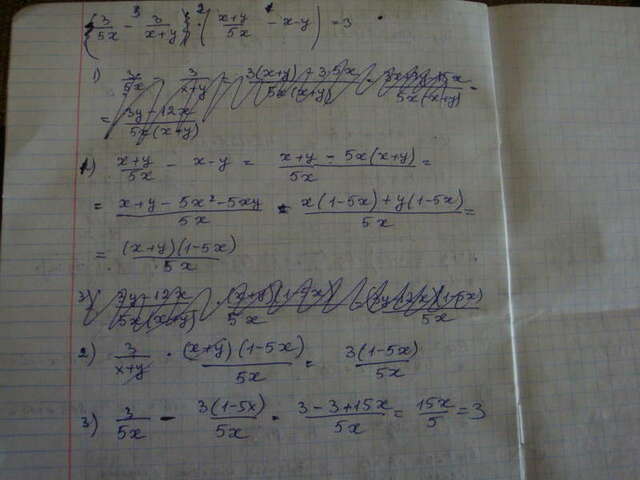 {3/5x - 3/(x+y)} · ((x+y)/5x - x-y) = 3
1) 3/5x - 3/(x+y) = (3(x+y) - 3·5x)/(5x(x+y)) = (3x+3y-15x)/(5x(x+y)) =
= (3y-12x)/(5x(x+y))
1) (x+y)/5x - x-y = (x+y-5x(x+y))/5x =
= (x+y-5x²-5xy)/5x = (x(1-5x)+y(1-5x))/5x =
= ((x+y)(1-5x))/5x
3) (3y-12x)/(5x(x+y)) · ((x+y)(1-5x))/5x = ((3y-12x)(1-5x))/5x
2) 3/(x+y) · ((x+y)(1-5x))/5x = 3(1-5x)/5x
3) 3/5x - 3(1-5x)/5x = (3-3+15x)/5x = 15x/5 = 3